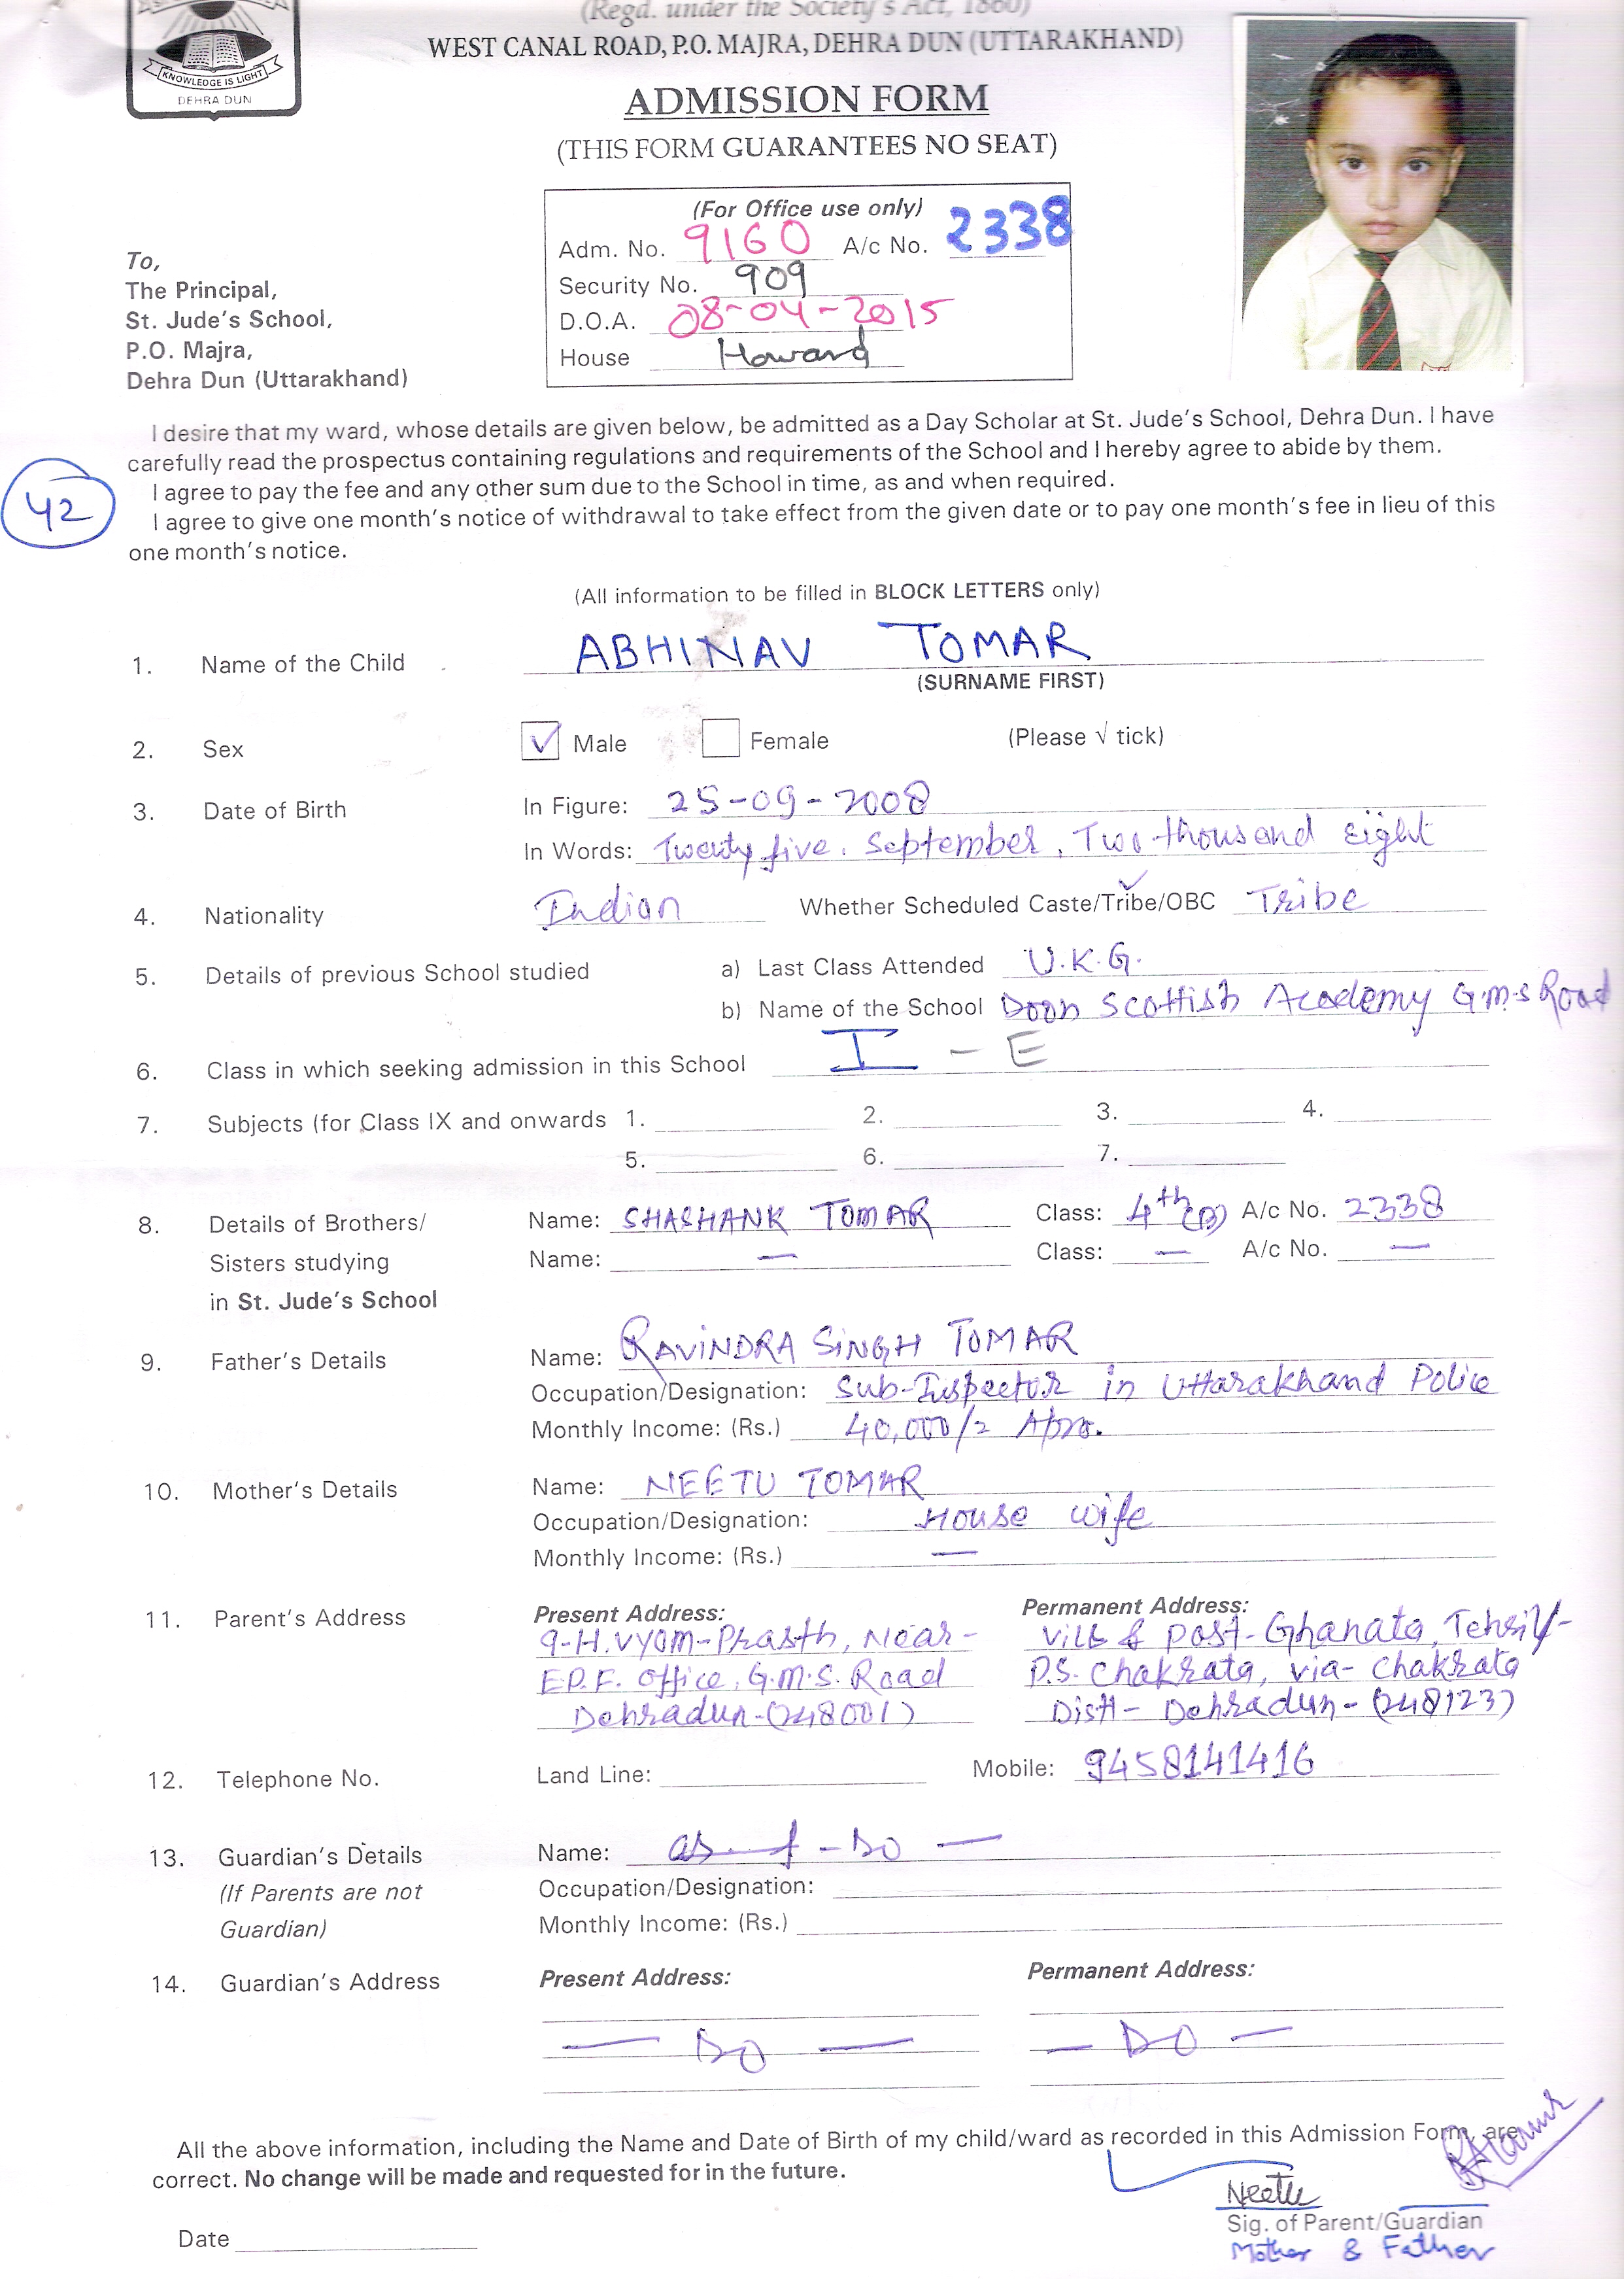 (Regd. under the Society's Act, 1860)
WEST CANAL ROAD, P.O. MAJRA, DEHRA DUN (UTTARAKHAND)
KNOWLEDGE IS LIGHT
DEHRA DUN
ADMISSION FORM
(THIS FORM GUARANTEES NO SEAT)
(For Office use only)
Adm. No. 9160 A/c No. 2338
Security No. 909
D.O.A. 08-04-2015
House Howard
To,
The Principal,
St. Jude's School,
P.O. Majra,
Dehra Dun (Uttarakhand)
I desire that my ward, whose details are given below, be admitted as a Day Scholar at St. Jude's School, Dehra Dun. I have
carefully read the prospectus containing regulations and requirements of the School and I hereby agree to abide by them.
I agree to pay the fee and any other sum due to the School in time, as and when required.
42
I agree to give one month's notice of withdrawal to take effect from the given date or to pay one month's fee in lieu of this
one month's notice.
(All information to be filled in BLOCK LETTERS only)
1. Name of the Child ABHINAV TOMAR
(SURNAME FIRST)
2. Sex ✓ Male Female (Please √ tick)
3. Date of Birth In Figure: 25-09-2008
In Words: Twenty five. September, Two thousand Eight
4. Nationality Indian Whether Scheduled Caste/Tribe/OBC Tribe
5. Details of previous School studied a) Last Class Attended U.K.G.
b) Name of the School Doon Scottish Academy G.M.S Road
6. Class in which seeking admission in this School I - E
7. Subjects (for Class IX and onwards 1. 2. 3. 4.
5. 6. 7.
8. Details of Brothers/ Name: SHASHANK TOMAR Class: 4th (B) A/c No. 2338
Sisters studying Name: — Class: — A/c No. —
in St. Jude's School
9. Father's Details Name: RAVINDRA SINGH TOMAR
Occupation/Designation: Sub-Inspector in Uttarakhand Police
Monthly Income: (Rs.) 40,000/= Apro.
10. Mother's Details Name: NEETU TOMAR
Occupation/Designation: House wife
Monthly Income: (Rs.) —
11. Parent's Address Present Address: Permanent Address:
9-H. Vyom-Prasth, Near- Vill & Post-Ghanata, Tehsil/-
E.P.F. Office, G.M.S. Road P.S. Chakrata, via- Chakrata
Dehradun-(248001) Distt- Dehradun-(248123)
12. Telephone No. Land Line: Mobile: 9458141416
13. Guardian's Details Name: - DO —
(If Parents are not Occupation/Designation:
Guardian) Monthly Income: (Rs.)
14. Guardian's Address Present Address: Permanent Address:
— DO — — DO —
All the above information, including the Name and Date of Birth of my child/ward as recorded in this Admission Form, are
correct. No change will be made and requested for in the future.
Neetu
Date Sig. of Parent/Guardian
Mother & Father